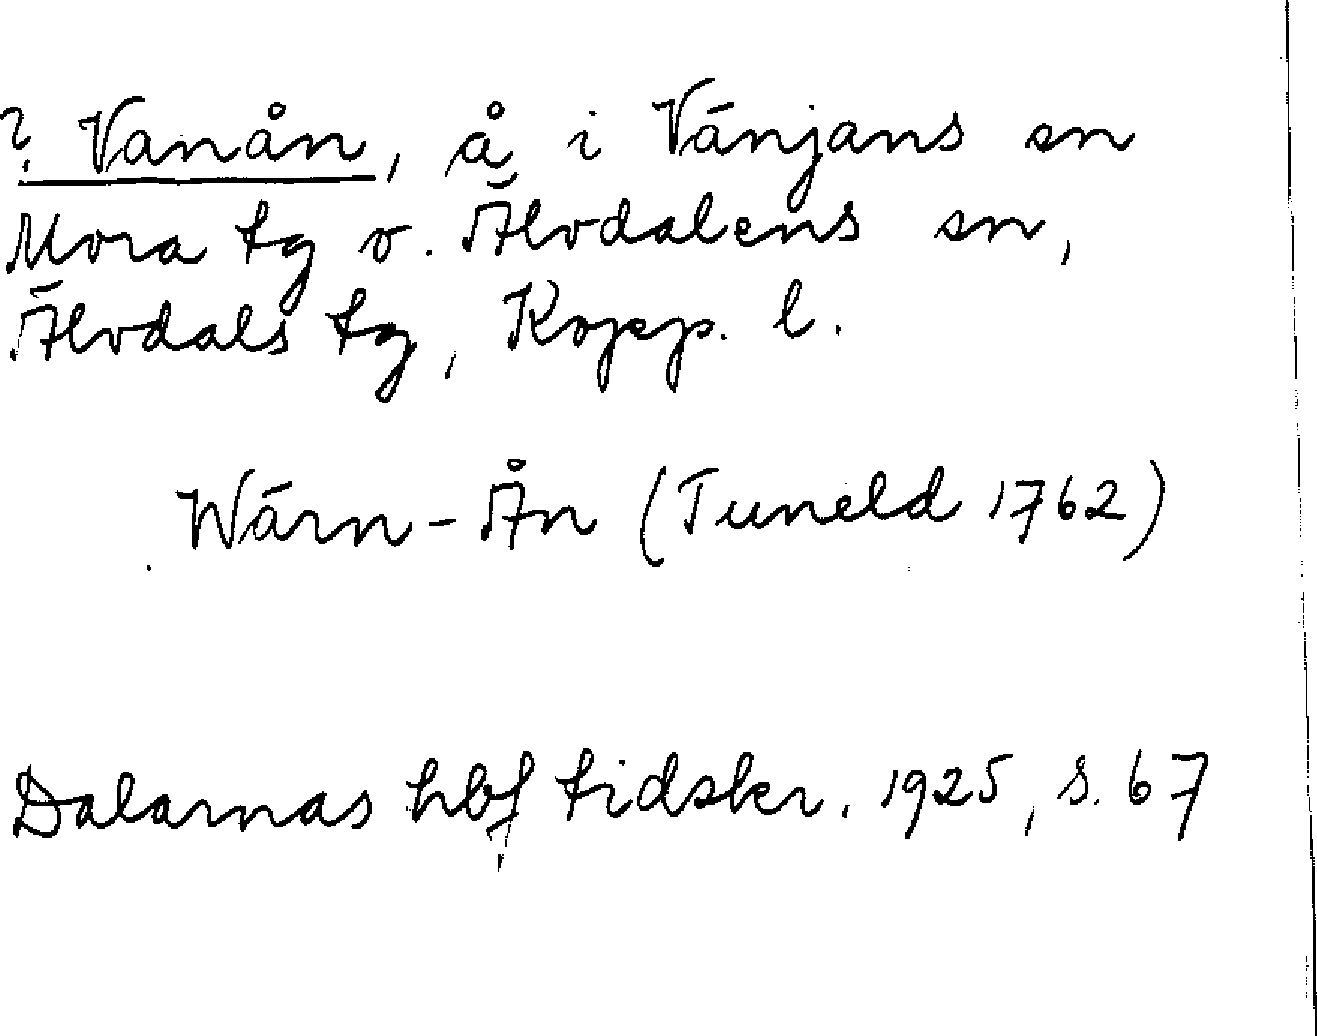 ? Vanån, å i Vänjans sn
Mora tg o. Älvdalens sn,
Älvdals tg, Kopp. l.
Wärn-Ån (Tuneld 1762)
Dalarnas hbf tidskr. 1925, s. 67